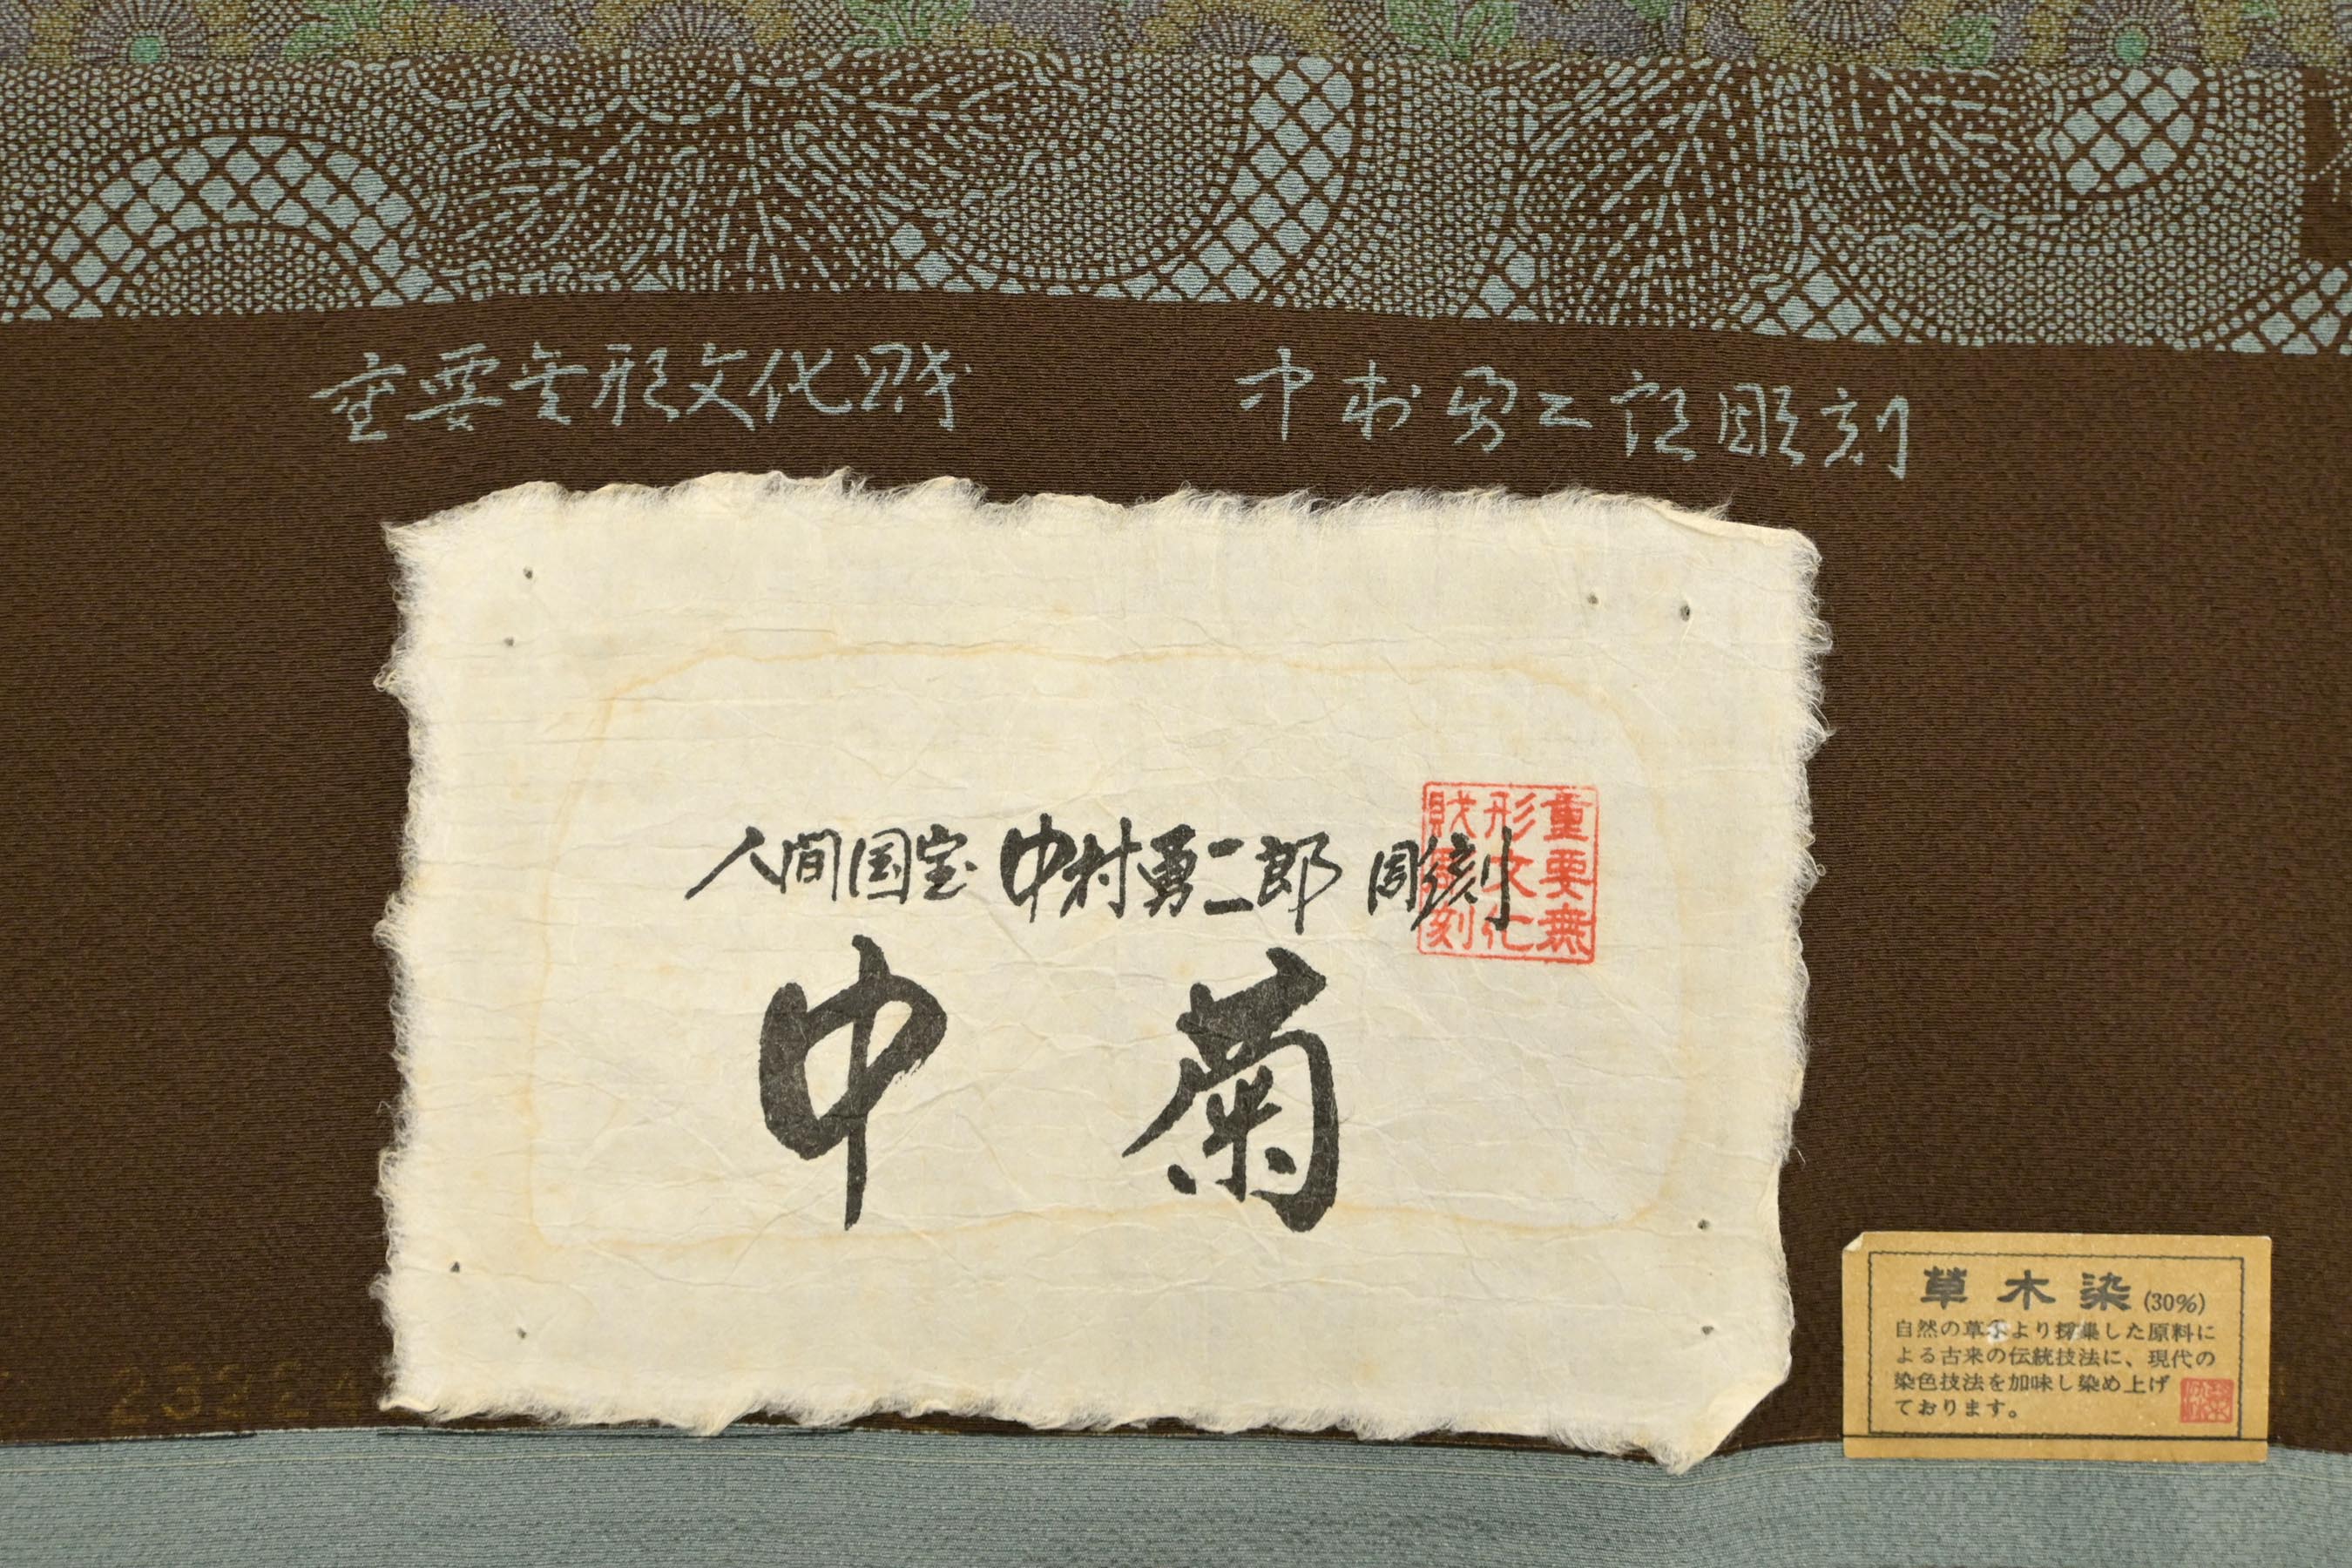 重要無形文化財 中村勇二郎彫刻
人間国宝 中村勇二郎 彫刻
重要無
形文化
財彫刻
中 菊
草木染(30%)
自然の草木より採集した原料に
よる古来の伝統技法に、現代の
染色技法を加味し染め上げ
ております。